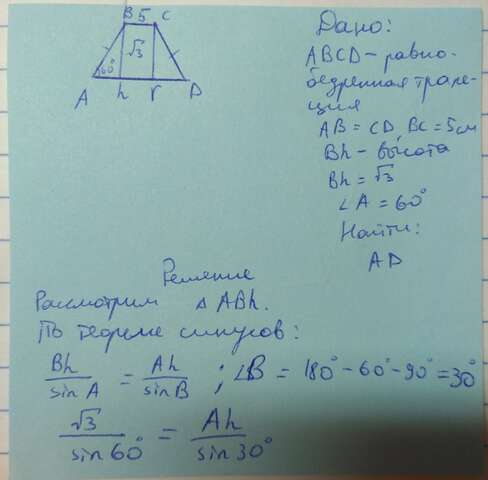 B 5 C
√3
60°
A h r D
Дано:
ABCD – равно-
бедренная трапе-
ция
AB = CD, BC = 5см
Bh – высота
Bh = √3
∠A = 60°
Найти:
AD
Решение
Рассмотрим △ ABh.
По теореме синусов:
Bh/sin A = Ah/sin B ; ∠B = 180° - 60° - 90° = 30°
√3/sin 60° = Ah/sin 30°